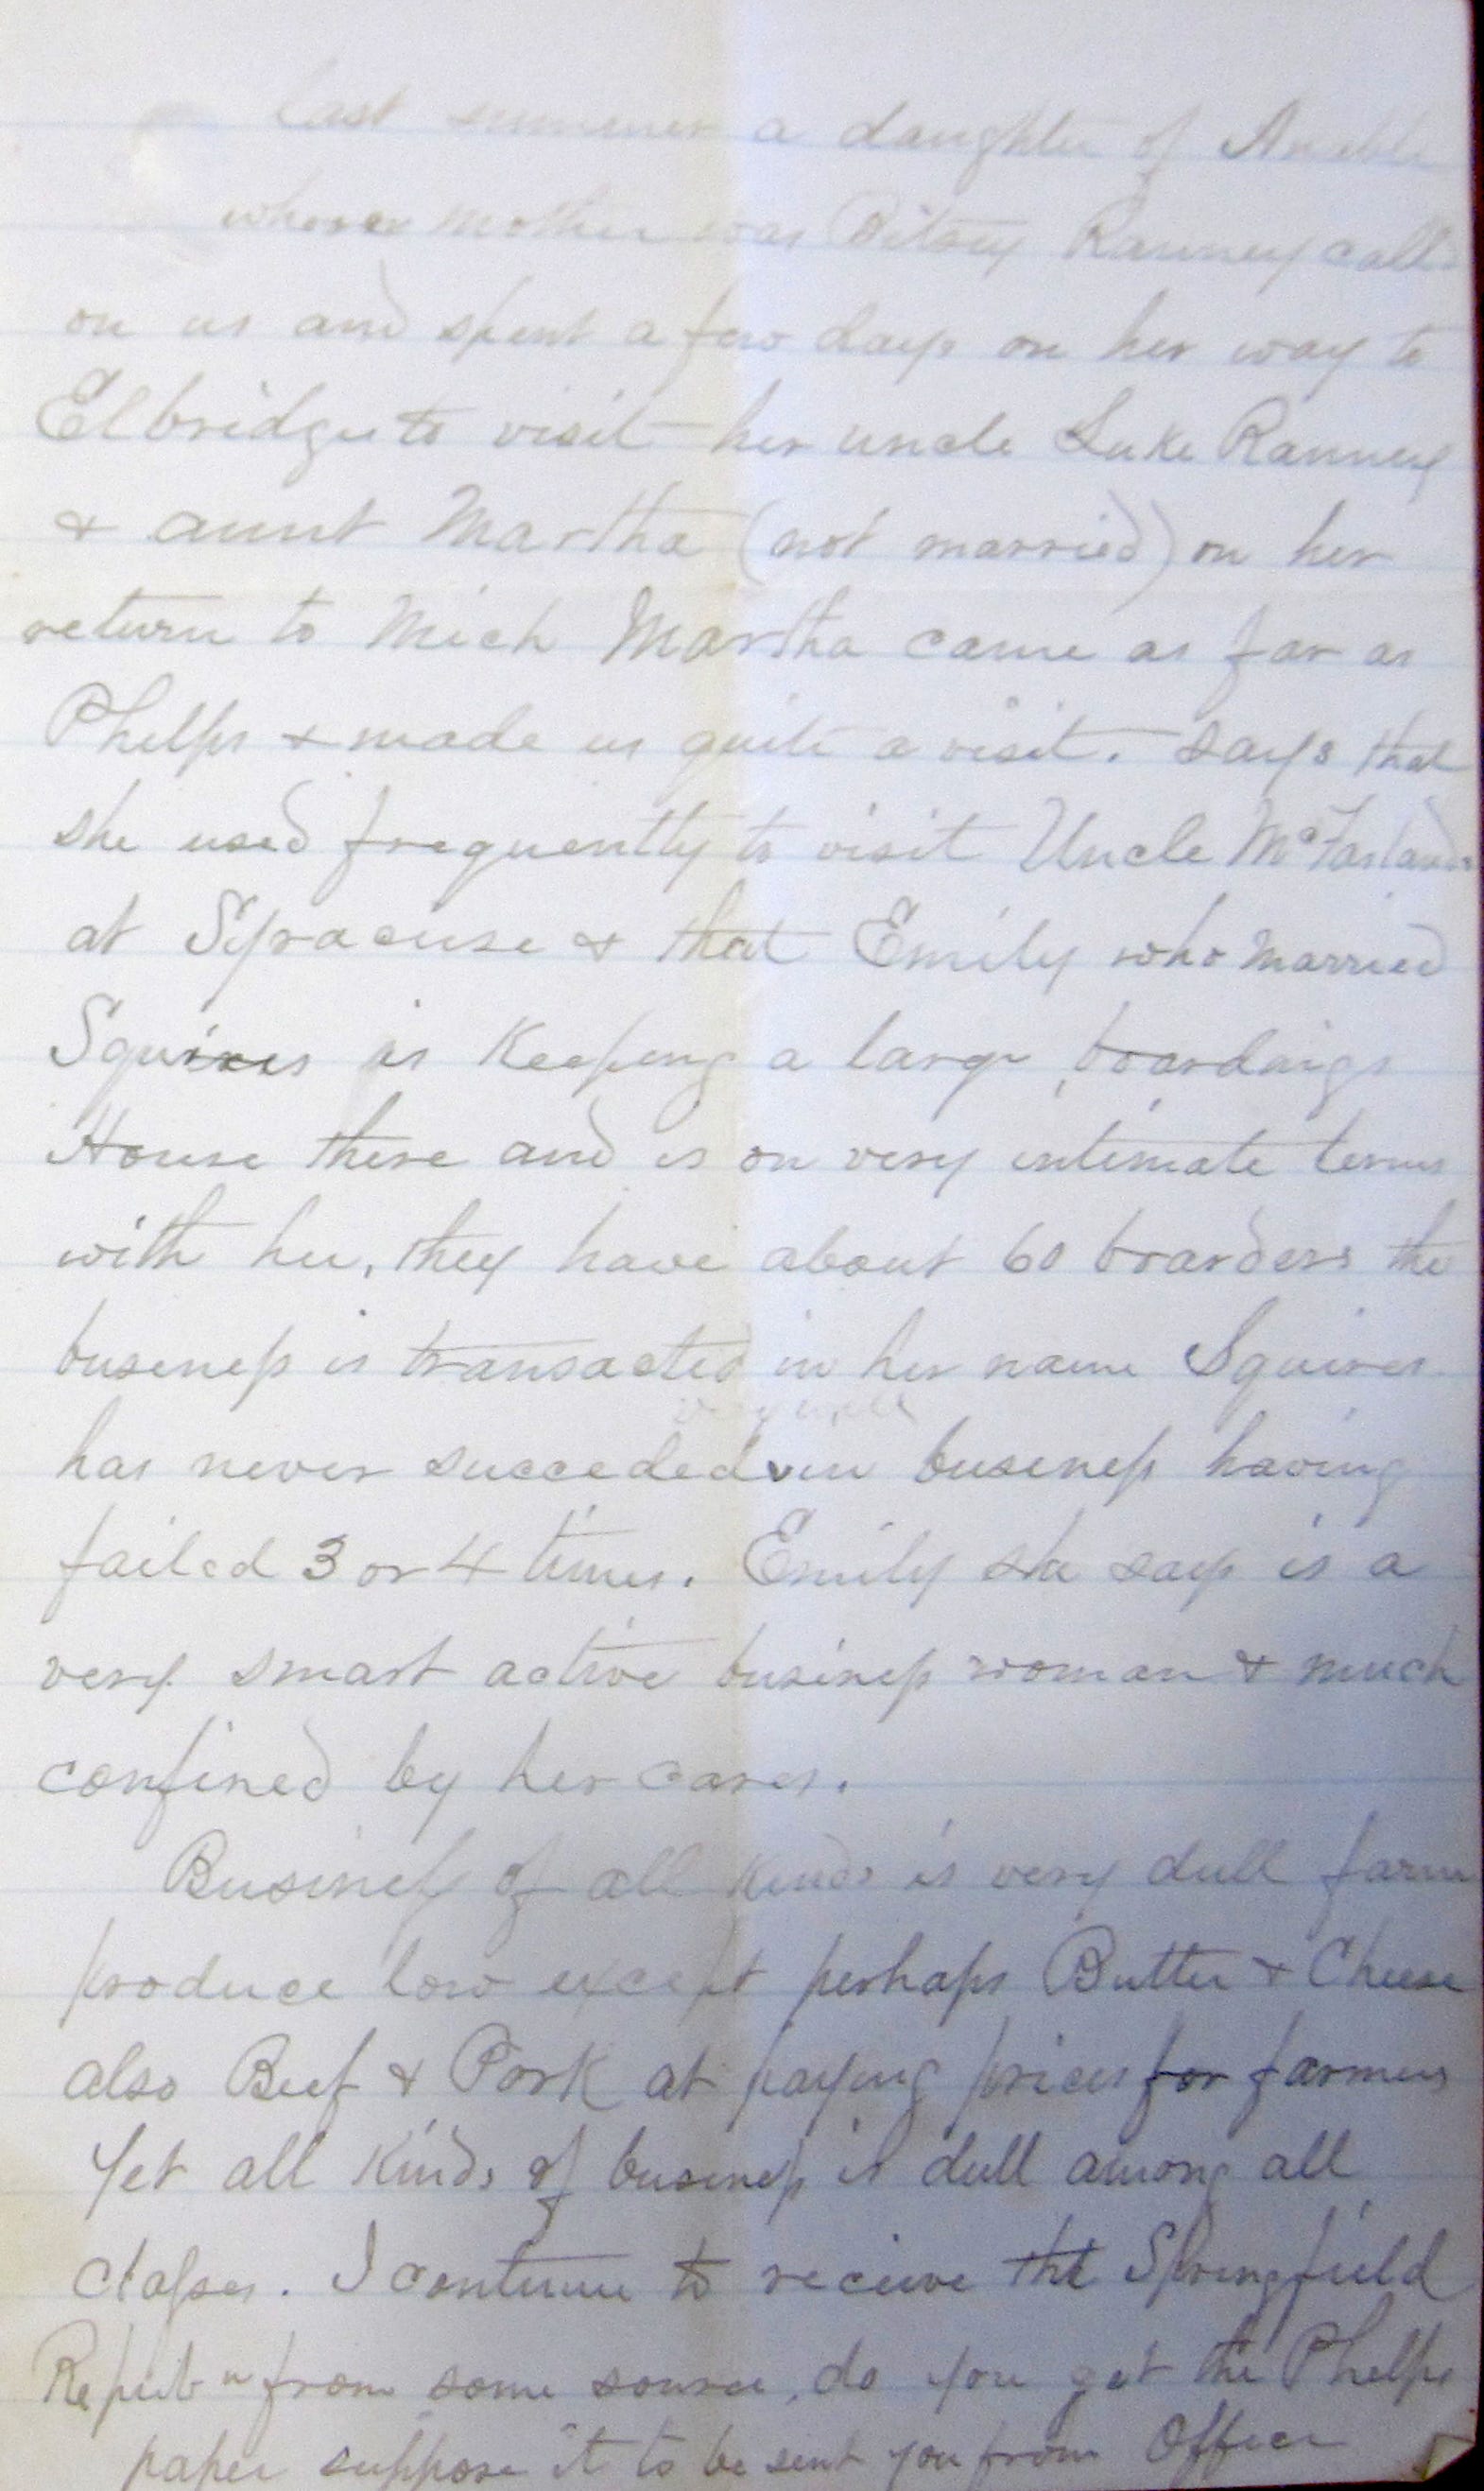 last summer a daughter of
whose mother was Bitsey Ranney call
on us and spent a few days on her way to
Elbridge to visit her uncle Luke Ranney
& aunt Martha (not married) on her
return to Mich Martha came as far as
Phelps & made us quite a visit. says that
she used frequently to visit Uncle McFarland
at Syracuse & that Emily who married
Squires is Keeping a large boarding
House there and is on very intimate terms
with her, they have about 60 boarders the
business is transacted in her name Squires
very well
has never succeded in business having
failed 3 or 4 times. Emily she says is a
very smart active business woman & much
confined by her cares.
Business of all kinds is very dull farm
produce low except perhaps Butter & Cheese
also Beef & Pork at paying prices for farmers
Yet all Kinds of business is dull among all
classes. I continue to receive the Springfield
Repubn from some source, do you get the Phelps
paper suppose it to be sent you from Office